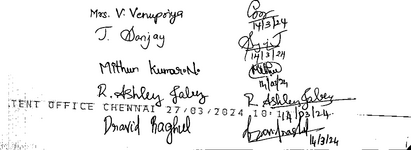 Mrs. V. Venupriya
14/3/24
J. Sanjay
14/3/24
Mithun Kumar. N.
14/03/24
R. Ashley Jabez R. Ashley Jabez
TENT OFFICE CHENNAI 27/03/2024 10:1
14/03/24
Dravid Raghul
14/3/24